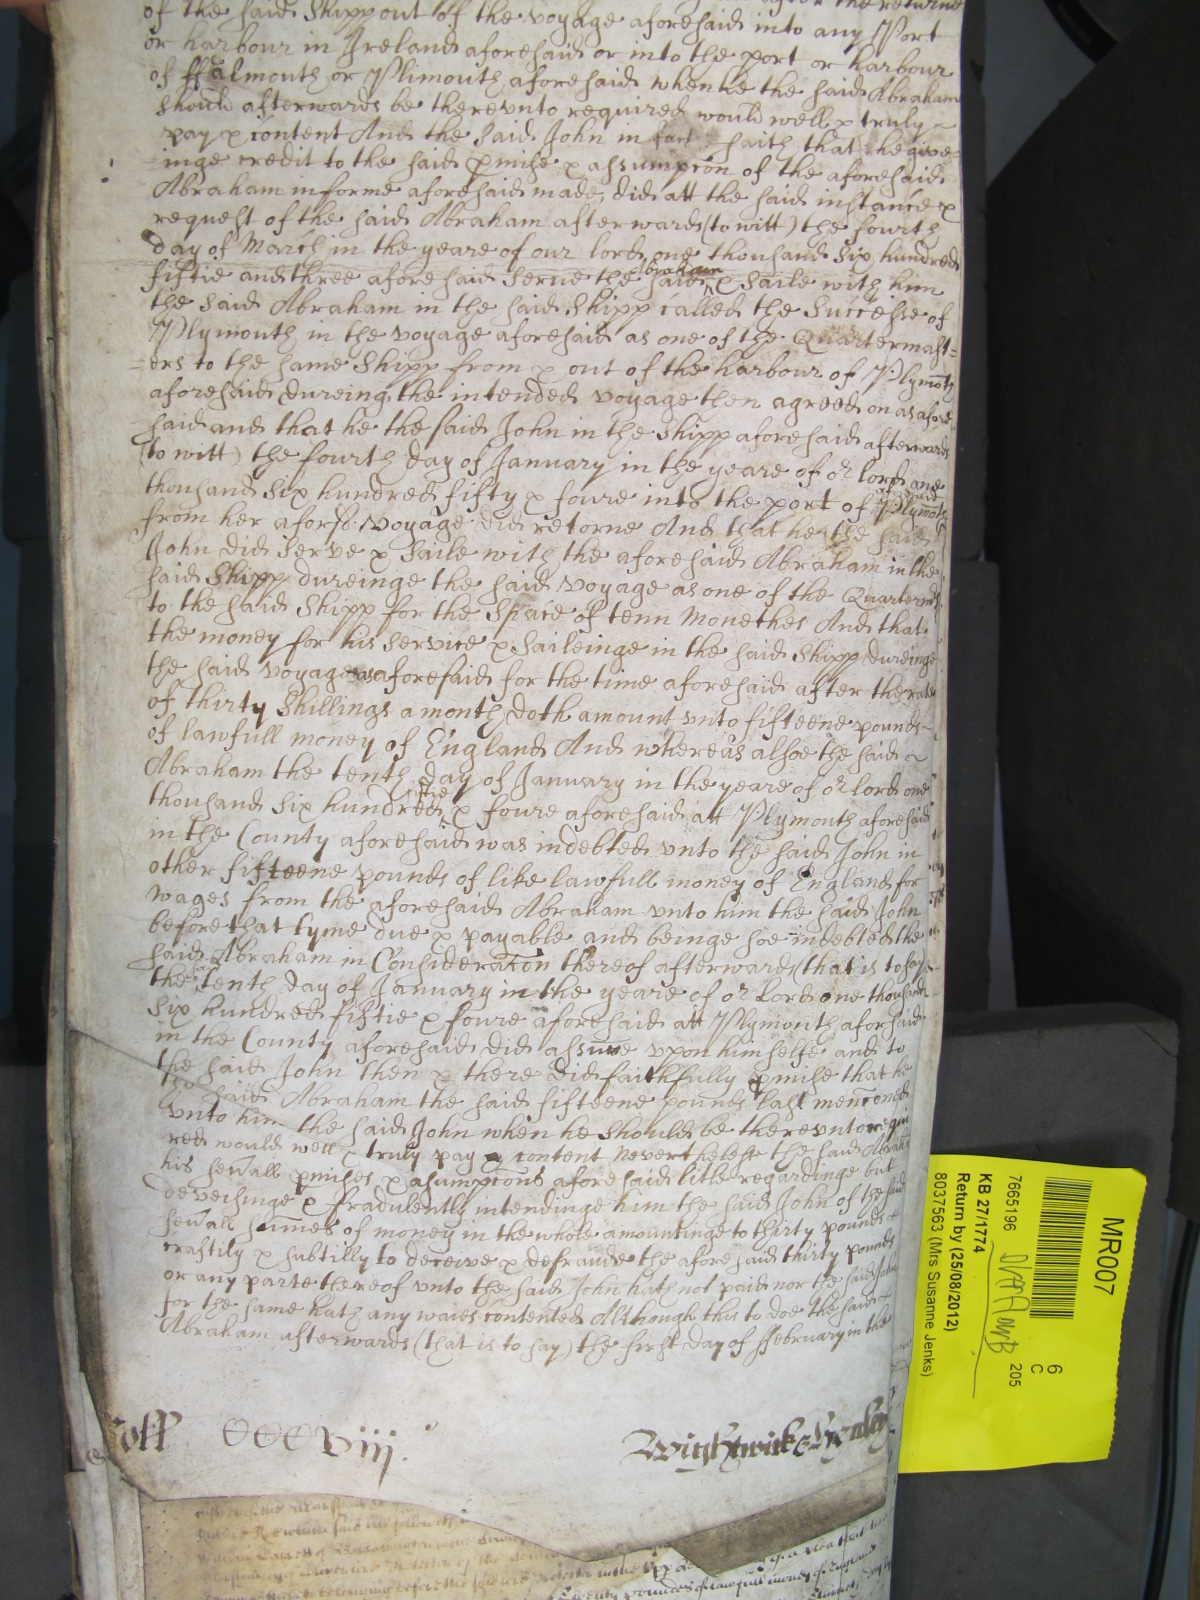 of the said Shipp out of the voyage aforesaid into any Port
or harbour in Ireland aforesaid or into the port or harbour
of ffalmouth or Plimouth aforesaid when he the said Abraham
should afterwards be therevnto required would well & truly
pay & content And the said John in fact saith that he give=
inge credit to the said pmise & assumpcon of the aforesaid
Abraham in forme aforesaid made, did att the said instance &
request of the said Abraham afterwards (to witt) the fourth
day of March in the yeare of our lord one thousand six hundred
fiftie and three aforesaid serve the said Abraham & saile with him
the said Abraham in the said Shipp called the Successe of
Plymouth in the voyage aforesaid as one of the Quartermast=
=ers to the same Shipp from & out of the harbour of Plymoth
aforesaid dureing the intended voyage then agreed on as afore
said and that he the said John in the Shipp aforesaid afterwards
(to witt) the fourth day of January in the yeare of or lord one
thousand six hundred fifty & foure into the port of Plymoth aforesaid
from her aforsd voyage did retorne And that he the said
John did serve & saile with the aforesaid Abraham in the
said Shipp dureinge the said voyage as one of the Quarterms
to the said Shipp for the space of tenn monethes And that
the money for his service & saileinge in the said Shipp dureinge
the said voyage as aforesaid for the time aforesaid after the rate
of thirty shillings a month doth amount vnto fifteene pounds
of lawfull money of England And whereas alsoe the said
Abraham the tenth day of January in the yeare of or lord one
thousand six hundred fiftie & foure aforesaid att Plymouth aforesaid
in the County aforesaid was indebted vnto the said John in
other fifteene pounds of like lawfull money of England for
wages from the aforesaid Abraham vnto him the said John
before that tyme due & payable and beinge soe indebted the
said Abraham in Consideracon thereof afterwards (that is to say
the tenth day of January in the yeare of or Lord one thousand
six hundred fiftie & foure aforesaid att Plymouth aforsaid
in the County aforesaid did assume vpon himselfe and to
the said John then & there did faithfully pmise that he
the said Abraham the said fifteene pounds last menconed
vnto him the said John when he should be therevnto requi
red would well & truly pay & content Neverthelesse the said Abraha
his sevall pmises & asumpcons aforesaid litle regardinge but
deveisinge & fradulently intendinge him the said John of the said
sevall summes of money in the whole amountinge to thirty pounds
craftily & subtilly to deceive & defraude the aforesaid thirty pounds
or any parte thereof vnto the said John hath not paid nor the said John
for the same hath any waies contented Although this to doe the said
Abraham afterwards (that is to say) the first day of ffebruary in the
viij
Wightwicke
MR007
6
C
205
7665196
KB 27/1774
Return by (25/08/2012)
8037563 (Mrs Susanne Jenks)